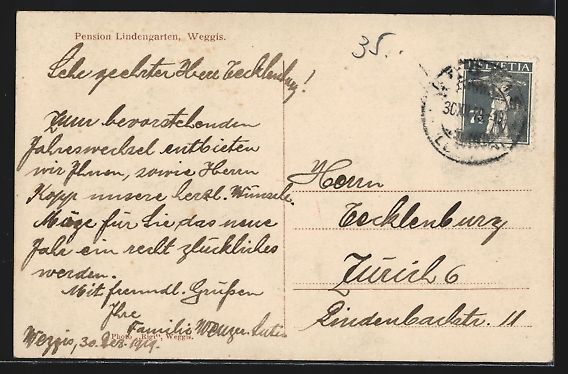 Pension Lindengarten, Weggis.
35.
Sehr geehrter Herr Tecklenburg!
HELVETIA
Zum bevorstehenden
Jahreswechsel entbieten
wir Ihnen, sowie Herrn
Kopp unsere herzl. Wünsche.
Möge für Sie das neue
Jahr ein recht glückliches
werden.
Mit freundl. Grüßen
Ihre
Familie
Weggis, 30. Dez.
Photo „Rigi“, Weggis.
Herrn
Tecklenburg
Zürich 6
Lindenbachstr. 11